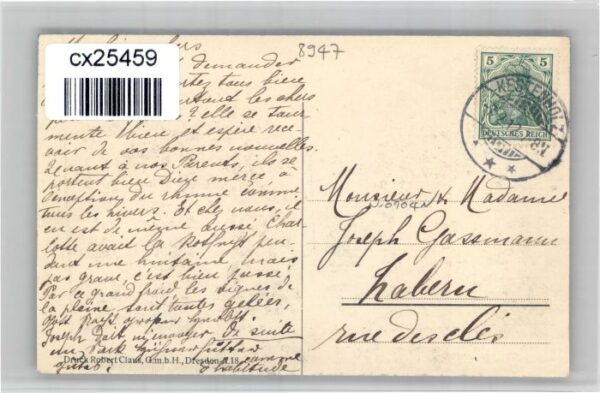 cx25459
8947
demander
portez tous bien
les chers
? elle se tour
mente bien et espère rece
voir de vos bonnes nouvelles.
Quant à nos Parents, ils se
portent bien Dieu merci à
l'exception du rhume comme
tous les hivers. Et chez nous, il
en est de même aussi, Char
lotte avait la pen
dant une huitaine mais
pas grave, c'est bien passé.
Par ce grand froid les vignes de
la plaine sont toutes gelées,
Joseph doit m'envoyer De suite
un comme
d'habitude
Druck Robert Claus, G.m.b.H., Dresden-A.18.
5 5
DEUTSCHES REICH
KESTENHOLZ
Monsieur & Madame
Joseph Gassmann
Zabern
rue des clés